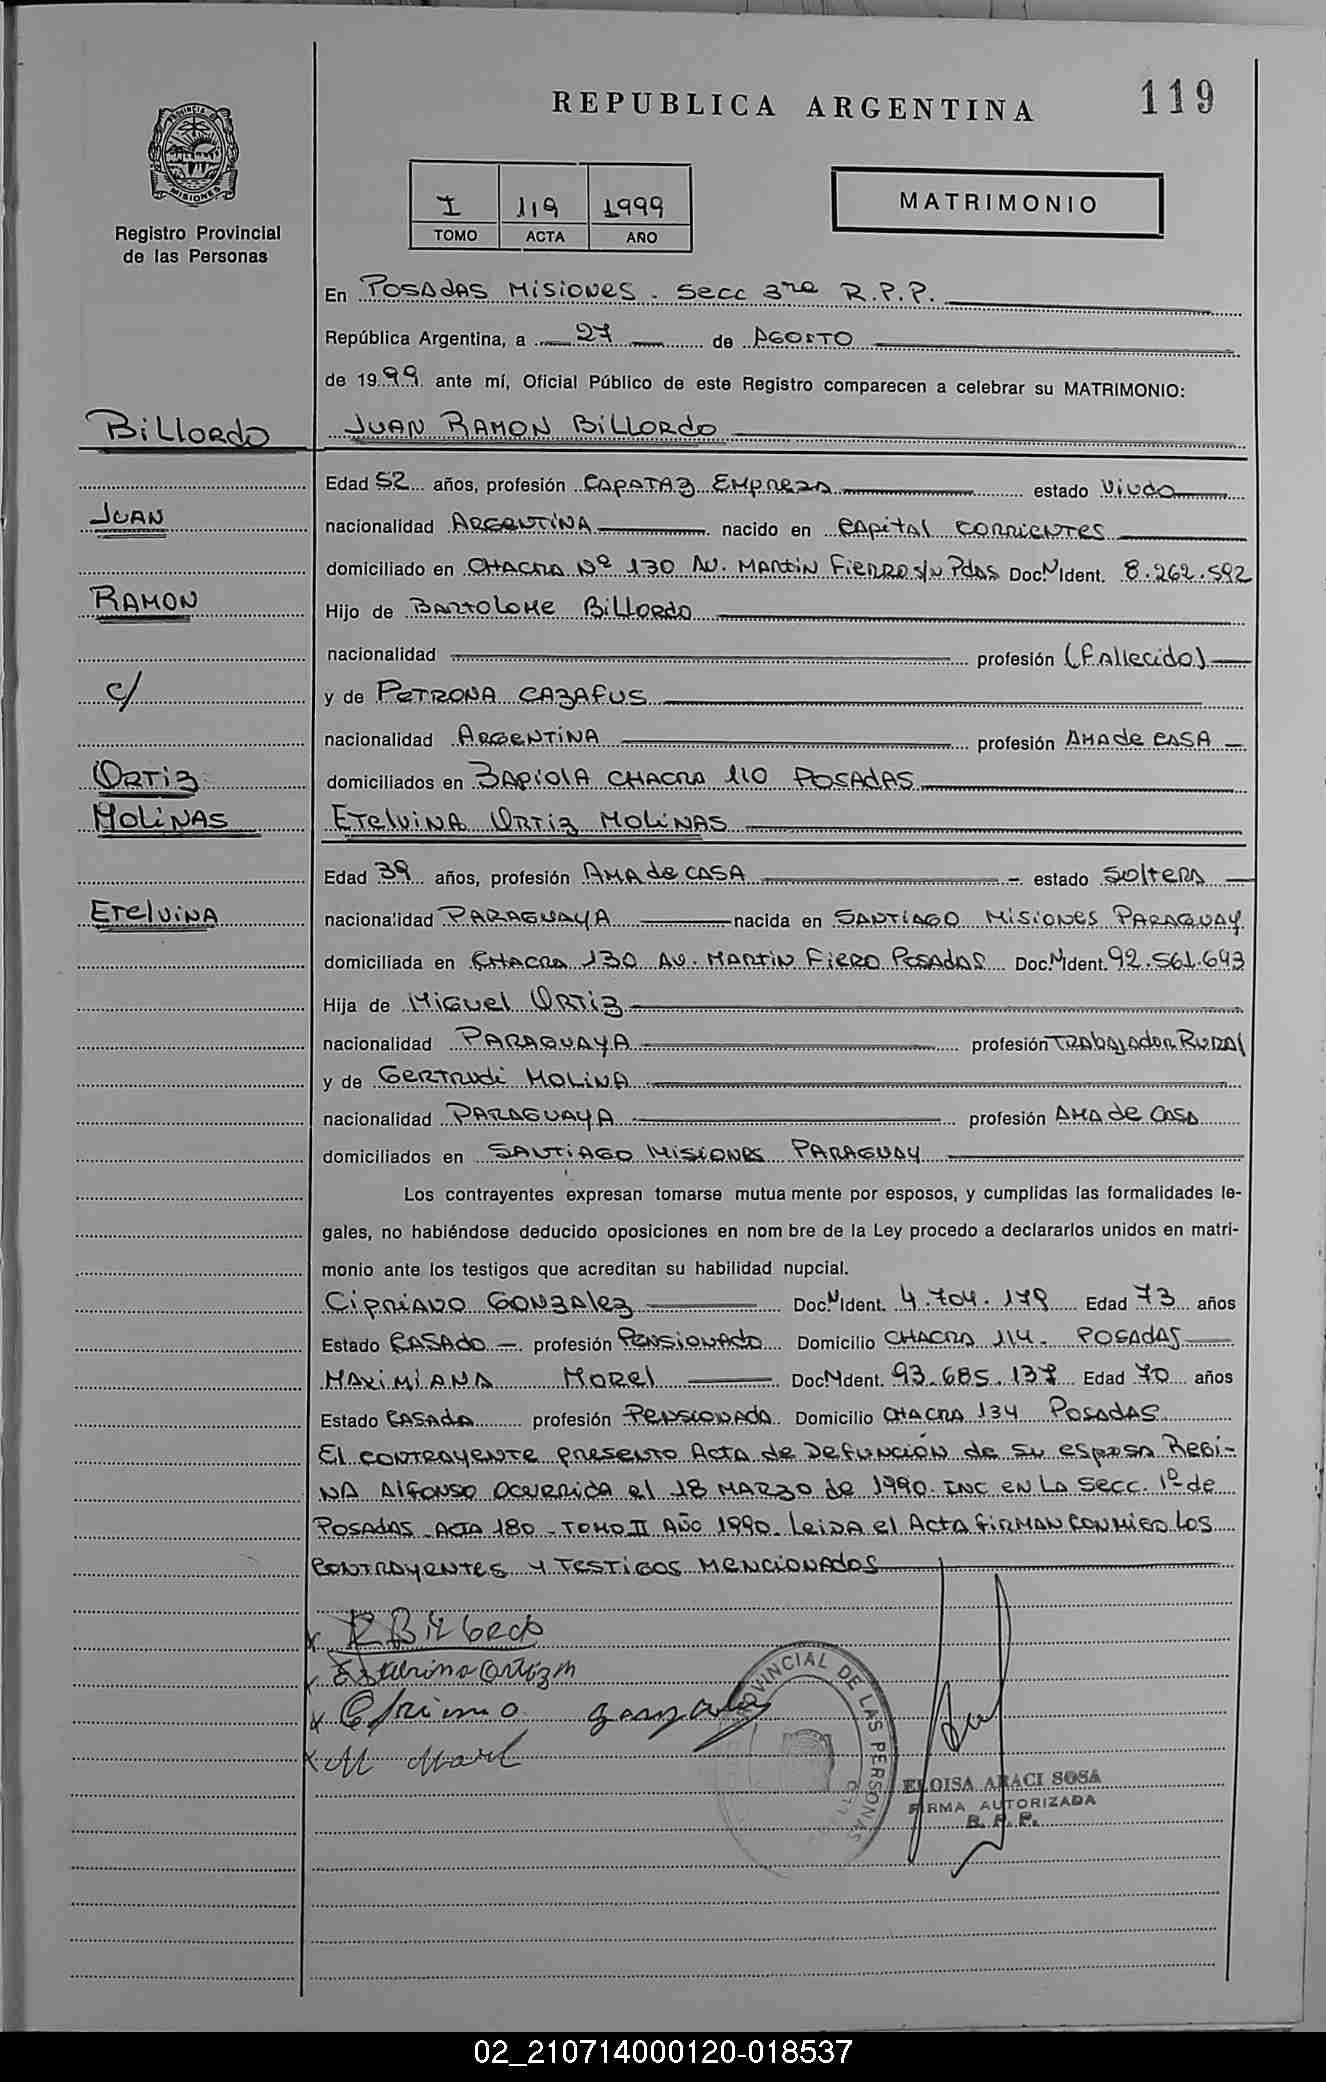 119
REPUBLICA ARGENTINA
PROVINCIA DE
MISIONES
Registro Provincial
de las Personas
I 119 1999
TOMO ACTA AÑO
MATRIMONIO
En POSADAS MISIONES. SECC 3ra R.P.P.
República Argentina, a 27 de AGOSTO
de 1999 ante mí, Oficial Público de este Registro comparecen a celebrar su MATRIMONIO:
BILLORDO
JUAN RAMON BILLORDO
Edad 52 años, profesión CAPATAZ EMPRESA estado VIUDO
JUAN
nacionalidad ARGENTINA nacido en CAPITAL CORRIENTES
domiciliado en CHACRA Nº 130 AV. MARTIN FIERRO S/N PDAS Doc.N Ident. 8.262.592
RAMON
Hijo de BARTOLOME BILLORDO
nacionalidad profesión (FALLECIDO)
c/
y de PETRONA CAZAFUS
nacionalidad ARGENTINA profesión AMA de CASA
ORTIZ
domiciliados en ZAPIOLA CHACRA 110 POSADAS
MOLINAS
ETELVINA ORTIZ MOLINAS
Edad 39 años, profesión AMA de CASA estado SOLTERA
ETELVINA
nacionalidad PARAGUAYA nacida en SANTIAGO MISIONES PARAGUAY
domiciliada en CHACRA 130 AV. MARTIN FIERO POSADAS Doc.N Ident. 92.561.643
Hija de MIGUEL ORTIZ
nacionalidad PARAGUAYA profesión TRABAJADOR RURAL
y de GERTRUDI MOLINA
nacionalidad PARAGUAYA profesión AMA de CASA
domiciliados en SANTIAGO MISIONES PARAGUAY
Los contrayentes expresan tomarse mutua mente por esposos, y cumplidas las formalidades le-
gales, no habiéndose deducido oposiciones en nom bre de la Ley procedo a declararlos unidos en matri-
monio ante los testigos que acreditan su habilidad nupcial.
CIPRIANO GONZALEZ Doc.N Ident. 4.704.179 Edad 73 años
Estado CASADO profesión PENSIONADO Domicilio CHACRA 114 - POSADAS
MAXIMIANA MOREL Doc.N Ident. 93.685.137 Edad 70 años
Estado CASADA profesión PENSIONADA Domicilio CHACRA 134 POSADAS
El CONTRAYENTE PRESENTO ACTA de DEFUNCIÓN de SU ESPOSA REGI-
NA ALFONSO OCURRIDA el 18 MARZO de 1990. INC EN LA SECC. 1º de
POSADAS - ACTA 180 - TOMO II AÑO 1990. LEIDA el ACTA FIRMAN CONMIGO LOS
CONTRAYENTES Y TESTIGOS MENCIONADOS
x R Billordo
x Etelvina Ortiz M
x Cipriano Gonzalez
x M Morel
PROVINCIAL DE LAS PERSONAS
ELOISA ARACI SOSA
FIRMA AUTORIZADA
R. P. P.
02_210714000120-018537